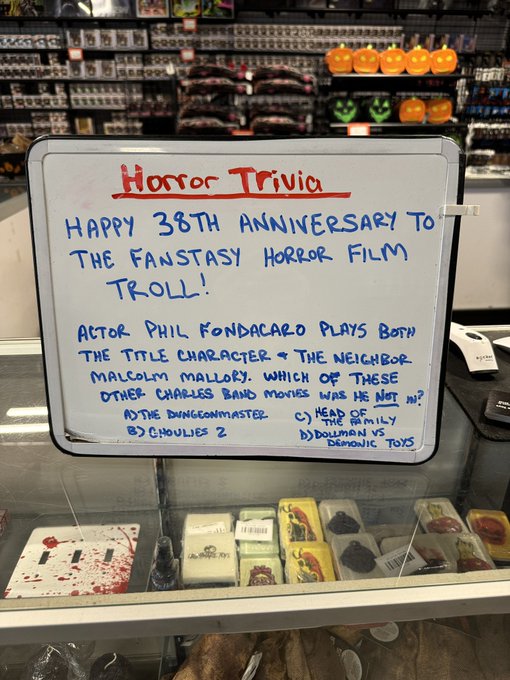 Horror Trivia
HAPPY 38TH ANNIVERSARY TO
THE FANSTASY HORROR FILM
TROLL!
ACTOR PHIL FONDACARO PLAYS BOTH
THE TITLE CHARACTER & THE NEIGHBOR
MALCOLM MALLORY. WHICH OF THESE
OTHER CHARLES BAND MOVIES WAS HE NOT IN?
A) THE DUNGEONMASTER
B) GHOULIES 2
C) HEAD OF
THE FAMILY
D) DOLLMAN VS
DEMONIC TOYS